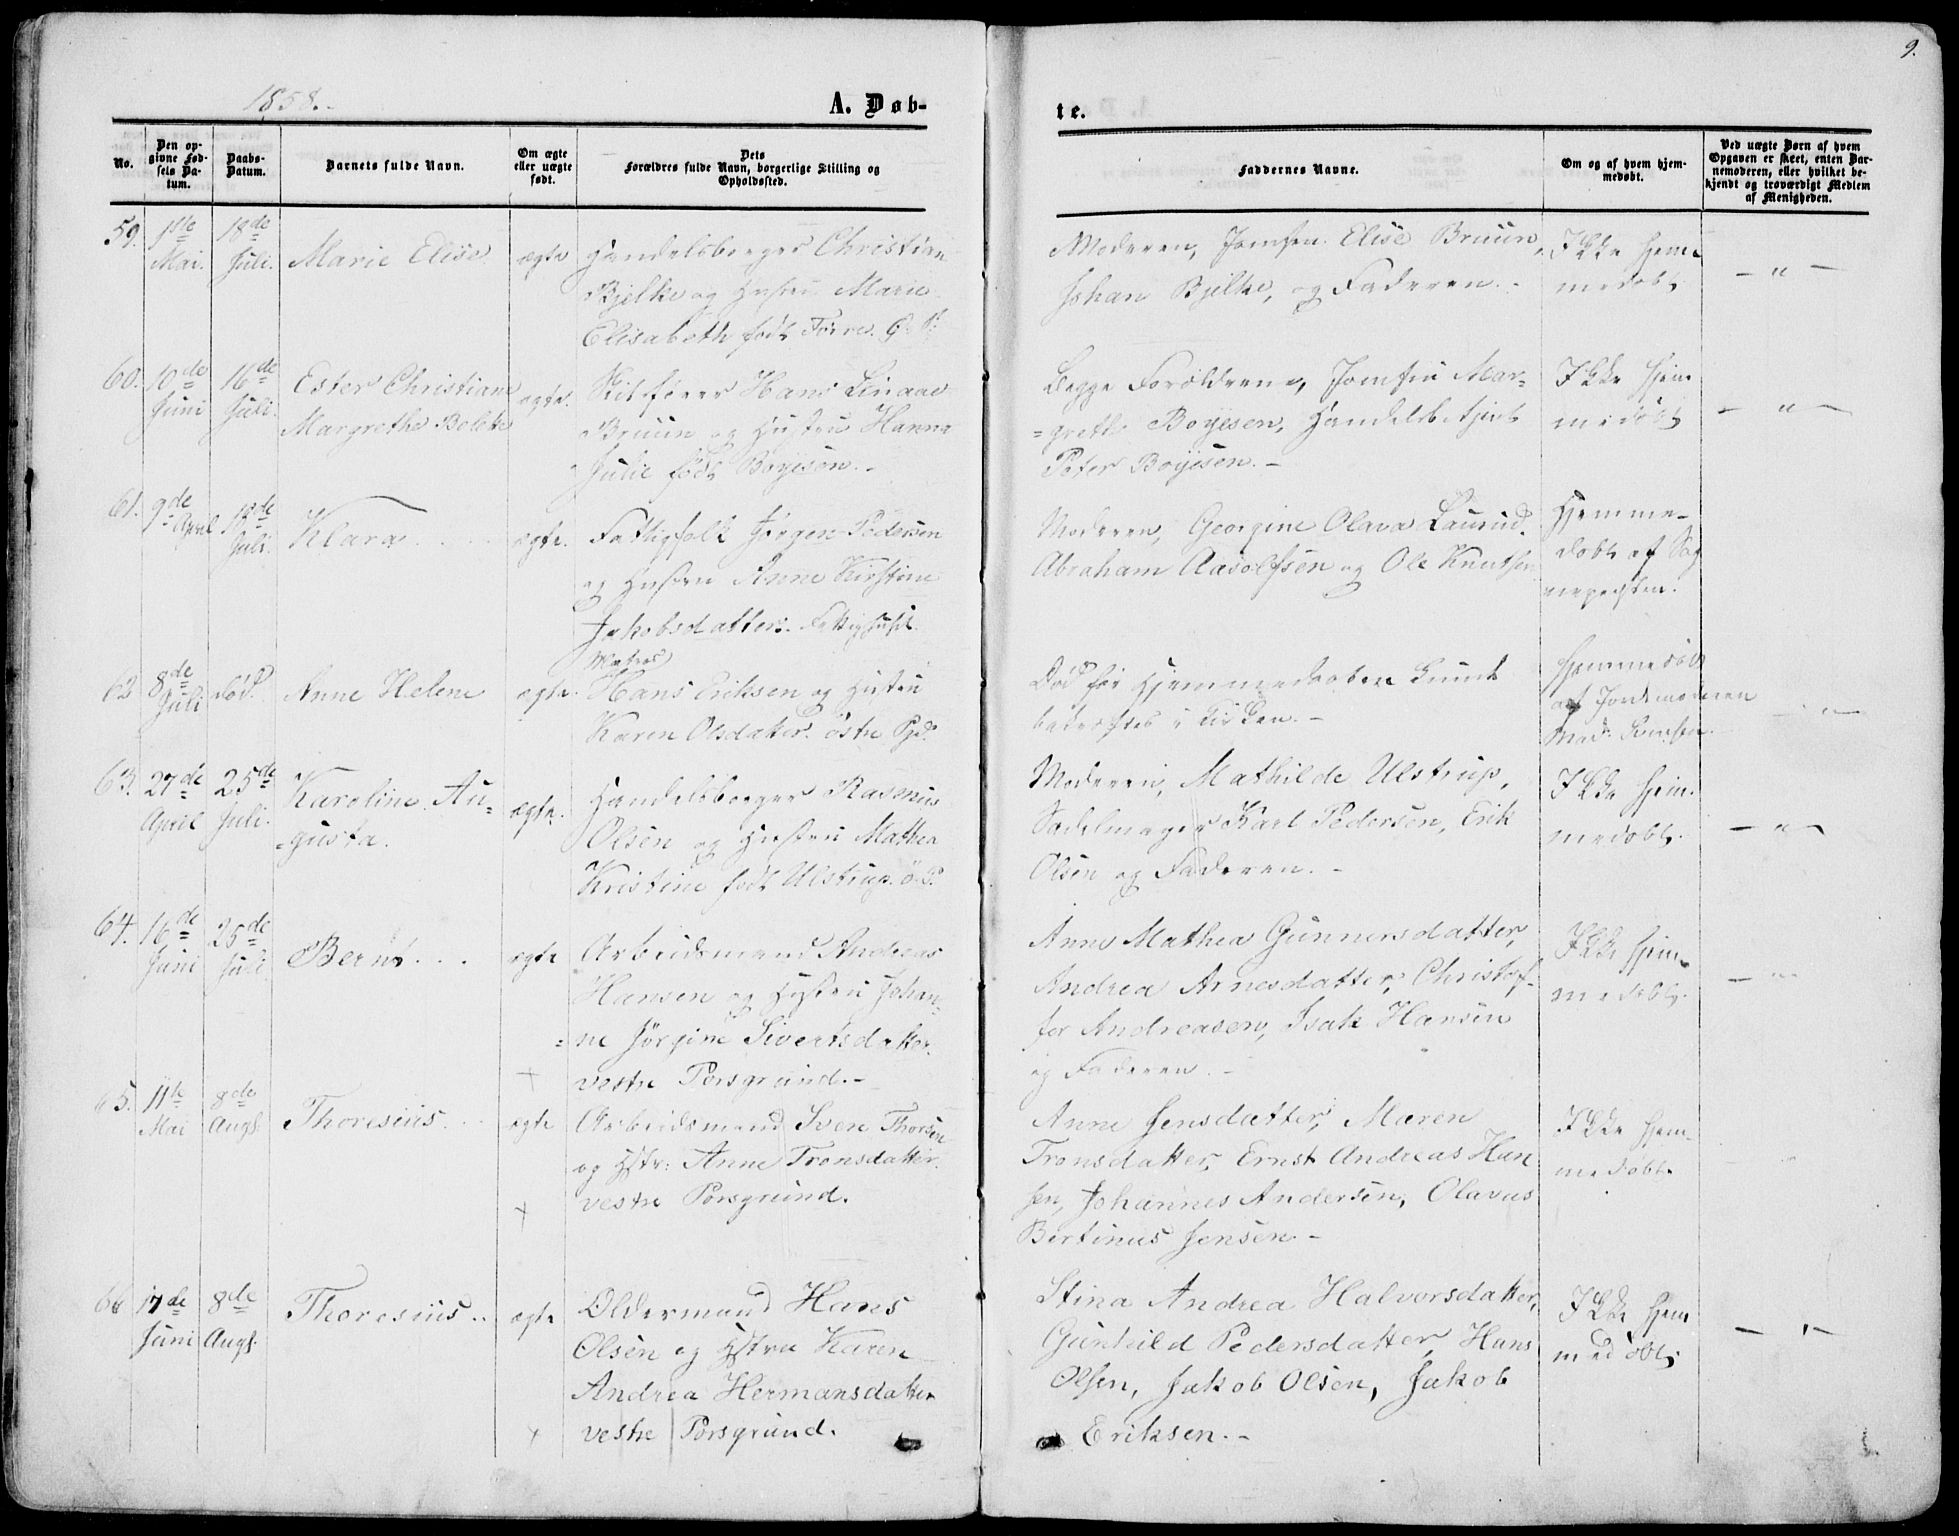 9.
1858.-
A. Døb-
te.
No.
Den op-
givne Fød-
sels Da-
tum.
Daabs-
Datum.
Barnets fulde Navn.
Om ægte
eller uægte
født.
Dets
Forældres fulde Navn, borgerlige Stilling og
Opholdssted.
Faddernes Navne.
Om og af hvem hjem-
medøbt.
Ved uægte Børn af hvem
Opgaven er skeet, enten Bar-
nemoderen, eller hvilket be-
kjendt og troværdigt Medlem
af Menigheden.
59.
1ste
Mai.
18de
Juli.
Marie Elise
ægte
Handelsborger Christian
Bjelke og Hustru Marie
Elisabeth født
Moderen, Jomfru Elise Bruun,
Johan Bjelke, og Faderen.-
Ikke hjem-
medøbt
- " -
60.
10de
Juni
16de
Juli.
Ester Christiane
Margrethe Bolete
ægte.
Hans Linaae
Bruun og Hustru Hanna
Julie født Boyesen.-
Begge Forældrene, Jomfru Mar=
=grethe Boyesen, Handelsbetjent
Peter Boyesen.-
Ikke hjem
medøbt
- " -
61.
9de
April
18de
Juli.
Klara
ægte.
Fattigfolk Jørgen Pedersen
og Hustru Anne Kirstine
Jakobsdatter. Fattighuset.
Moderen, Georgine Olava Laurud.
Abraham Aasolfsen og Ole Knutsen
Hjemme-
døbt af Sog
nepresten.
62
8de
Juli
død.
Anne Helene
ægte.
Matros
Hans Eriksen og Hustru
Karen Olsdatter. østre Pgd.
Død før Hjemmedaaben kunde
bekræftes i Kirken.-
Hjemmedøbt
af Jordemoderen
Mad.
- " -
63.
27de
April
25de
Juli.
Karoline Au=
=gusta.
ægte.
Handelsborger Rasmus
Olsen og Hustru Mathea
Kristine født Ulstrup. ø. P.
Moderen, Mathilde Ulstrup,
Sadelmager Karl Pedersen, Erik
Olsen og Faderen.-
Ikke hjem-
medøbt.
- " -
64.
16de
Juni
25de
Juli
Bernt . . .
ægte
Arbeidsmand Andreas
Hansen og Hustru Johan=
=ne Jørgine Sivertsdatter.
vestre Porsgrund.-
Anne Mathea Gunnersdatter,
Andrea Arnesdatter, Christof-
fer Andreasen, Isak Hansen
og Faderen.-
Ikke hjem-
medøbt.
- " -
65.
11te
Mai
8de
Augs.
Thoresius . . .
ægte
Arbeidsmand Sven Thorsen
og Hstr: Anne Tronsdatter.
vestre Porsgrund.
Anne Jensdatter, Maren
Tronsdatter, Ernst Andreas Han
sen, Johannes Andersen, Olavus
Bertinus Jensen.-
Ikke hjem-
medøbt.
66
17de
Juni
8de
Augs.
Thoresius . .
ægte
Oldermand Hans
Olsen og Hstru Karen
Andrea Hermansdatter
vestre Porsgrund.
Stina Andrea Halvorsdatter,
Gunhild Pedersdatter, Hans
Olsen, Jakob Olsen, Jakob
Eriksen.-
Ikke hjem
medøbt.
- " -